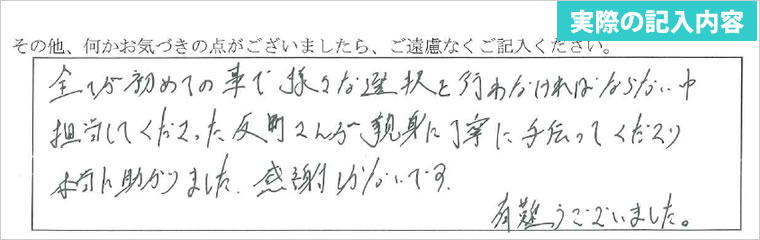 実際の記入内容
その他、何かお気づきの点がございましたら、ご遠慮なくご記入ください。
全てが初めての事で様々な選択を行わなければならない中
担当してくださった反町さんが親身に丁寧に手伝ってくださり
本当に助かりました。感謝しかないです。
有難うございました。